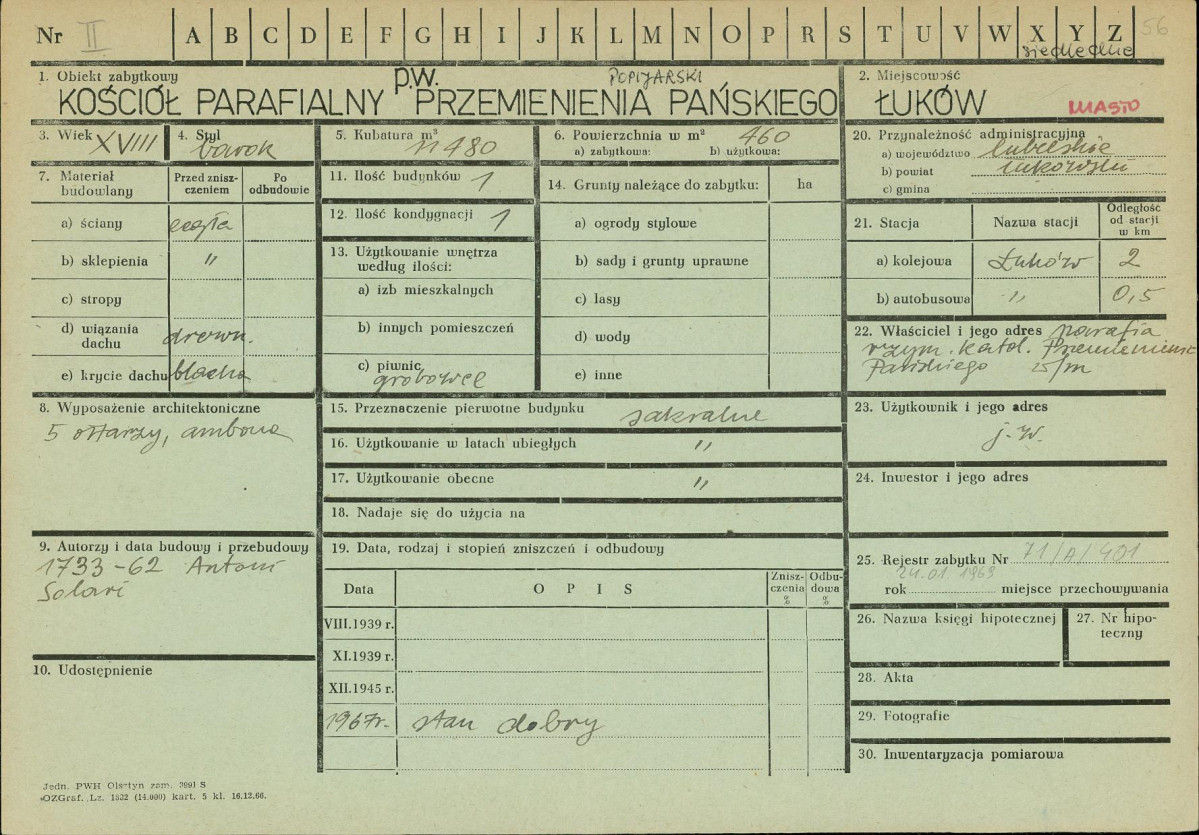 Nr II A B C D E F G H I J K L M N O P R S T U V W X Y Z 56
siedleckie
1. Obiekt zabytkowy
KOŚCIÓŁ PARAFIALNY p.w. PRZEMIENIENIA PAŃSKIEGO
POPIJARSKI
2. Miejscowość
ŁUKÓW MIASTO
3. Wiek XVIII
4. Styl barok
5. Kubatura m³ 11480
6. Powierzchnia w m² 460
a) zabytkowa: b) użytkowa:
7. Materiał budowlany
Przed zniszczeniem
Po odbudowie
a) ściany cegła
b) sklepienia "
c) stropy
d) wiązania dachu drewn.
e) krycie dachu blacha
8. Wyposażenie architektoniczne
5 ołtarzy, ambona
9. Autorzy i data budowy i przebudowy
1733-62 Antoni
Solari
10. Udostępnienie
11. Ilość budynków 1
12. Ilość kondygnacji 1
13. Użytkowanie wnętrza
według ilości:
a) izb mieszkalnych
b) innych pomieszczeń
c) piwnic
grobowce
14. Grunty należące do zabytku: ha
a) ogrody stylowe
b) sady i grunty uprawne
c) lasy
d) wody
e) inne
15. Przeznaczenie pierwotne budynku sakralne
16. Użytkowanie w latach ubiegłych "
17. Użytkowanie obecne "
18. Nadaje się do użycia na
19. Data, rodzaj i stopień zniszczeń i odbudowy
Data OPIS Zniszczenia % Odbudowa %
VIII.1939 r.
XI.1939 r.
XII.1945 r.
1967r. stan dobry
20. Przynależność administracyjna
a) województwo lubelskie
b) powiat łukowski
c) gmina
21. Stacja Nazwa stacji Odległość od stacji w km
a) kolejowa Łuków 2
b) autobusowa " 0,5
22. Właściciel i jego adres parafia
rzym. katol. Przemienienia
Pańskiego w/m
23. Użytkownik i jego adres
j.w.
24. Inwestor i jego adres
25. Rejestr zabytku Nr 71/A/401
24.01 1969
rok miejsce przechowywania
26. Nazwa księgi hipotecznej
27. Nr hipoteczny
28. Akta
29. Fotografie
30. Inwentaryzacja pomiarowa
Jedn. PWH Olsztyn zam. 3991 S
OZGraf. Lz. 1832 (14.000) kart. 5 kl. 16.12.66.